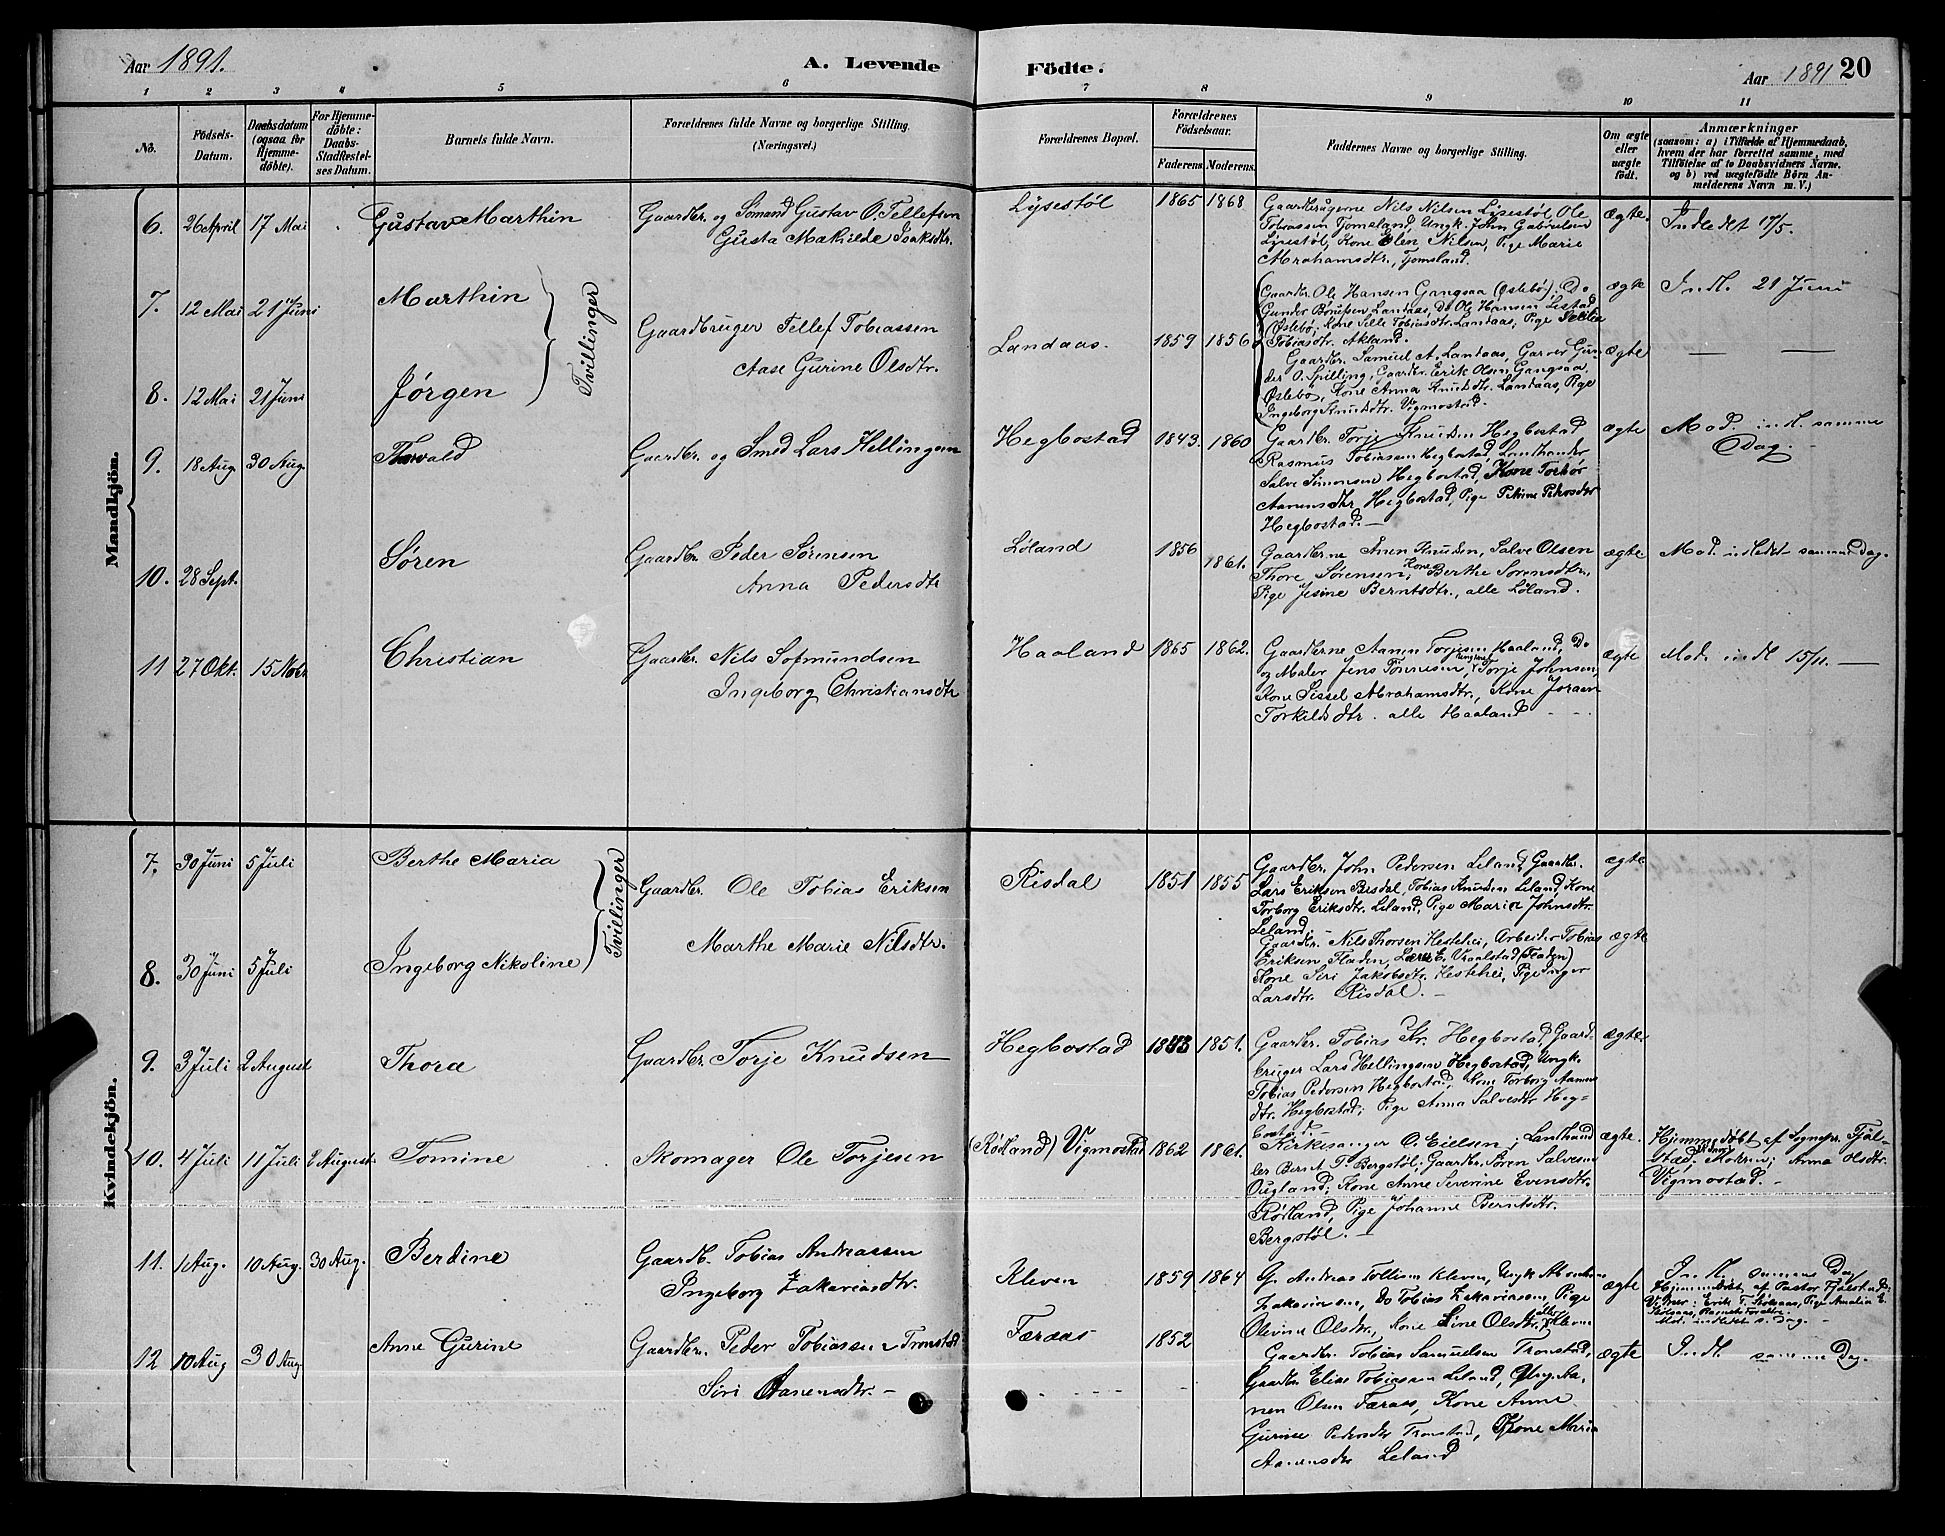 Aar 1891.
A. Levende
Födte.
Aar 1891
20
1 2 3 4 5 6 7 8 9 10 11
No.
Födsels-Datum.
Daabsdatum (ogsaa for Hjemme-döbte).
For Hjemme-döbte: Daabs-Stadfæstel-ses Datum.
Barnets fulde Navn.
Forældrenes fulde Navne og borgerlige Stilling. (Næringsvei.)
Forældrenes Bopæl.
Forældrenes Födselsaar.
Faderens. Moderens.
Faddernes Navne og borgerlige Stilling.
Om ægte eller uægte födt.
Anmærkninger
(saasom: a) i Tilfælde af Hjemmedaab, hvem der har forrettet samme, med Tilföielse af to Daabsvidners Navne. og b) ved uægtefödte Börn An-melderens Navn m. V.)
Mandkjön.
6. 26 April 17 Mai Gustav Marthin
Gaardbr. og Sømand Gustav O. Tellefsen
Gusta Mathilde Isaksdtr.
Lysestøl 1865 1868
Gaardbrugerne Nils Nilsen Lysestøl, Ole
Tobiassen Tjomsland, Ungk. John Gabrielsen
Lysestøl, Kone Elen Nilsen, Pige Marie
Abrahamsdtr., Tjomsland.
ægte. Indledet 17/5.
7. 12 Mai 21 Juni Marthin
Tvillinger
8. 12 Mai 21 Juni Jørgen
Gaardbruger Tellef Tobiassen
Aase Gurine Olsdtr.
Landaas. 1859 1856
Gaardbr. Ole Hansen Gangsaa (Øslebø), Do
Gunder Landaas, Do Ole Hansen Lestad,
Øslebø, Kone Tobiasdtr. Landaas, Pige
Tobiasdtr. Akland.
Gaardbr. Samuel A. Landaas, Garver Gun-
der O. Spilling, Gaardbr. Erik Olsen Gangsaa,
Øslebø, Kone Anna Knudsdtr. Landaas, Pige
Ingeborg Knudsdtr. Vigmostad.
ægte Indl. 21 Juni
ægte — —
9. 18 Aug. 30 Aug. Thorvald
Gaardbr. og Smed Lars Hellingsen
Hegbostad 1843. 1860
Gaardbr. Torje Knudsen Hegbostad
Rasmus Tobiassen Hegbostad, Landhandler
Salve Simonsen Hegbostad, Kone Torbør
Aanensdtr Hegbostad, Pige Petrine Pedersdtr
Hegbostad.—
ægte Mod. indl. samme
Dag.—
10. 28 Sept. Søren
Gaardbr. Peder Sørensen
Anna Pedersdtr
Løland 1856 1861.
Gaardbr.ne Anen Knudsen, Salve Olsen
Thore Sørensen, Kone Berthe Sørensdtr.,
Pige Jesine Berntsdtr., alle Løland.
ægte Mod. indledet samme Dag.
11 27 Okt. 15 Nobr Christian
Gaardbr. Nils Sofmundsen
Ingeborg Christiansdtr
Haaland 1865 1862.
Gaardbrne Aanen Torjesen Haaland, Do
og Maler Jens Tønnesen, Ungkarl Torje Johnsen,
Kone Sissel Abrahamsdtr., Kone Joraen
Torkildsdtr. alle Haaland
ægte Mod. indl 15/11. —
Kvindekjön.
7. 30 Juni 5 Juli Berthe Maria
Tvillinger
8. 30 Juni 5 Juli Ingeborg Nikoline
Gaardbr. Ole Tobias Eriksen
Marthe Marie Nilsdtr.
Risdal 1851 1855
Gaardbr. John Pedersen Leland, Gaardbr.
Lars Eriksen Risdal, Tobias Knudsen Leland, Kone
Torborg Eriksdtr. Leland, Pige Maria Johnsdtr.
Leland.—
Gaardbr. Nils Thorsen Hestehei, Arbeider Tobias
Eriksen Fladen, Lars E. Vraalstad (Fladen)
Kone Siri Jakobsdtr. Hestehei, Pige Inger
Larsdtr. Risdal.—
ægte
ægte
9. 3 Juli 2 August Thora
Gaardbr. Torje Knudsen
Hegbostad 1851.
Gaardbr. Tobias Kr. Hegbostad, Gaard-
bruger Lars Hellingsen Hegbostad, Ungk.
Tobias Pedersen Hegbostad, Kone Torborg Aanens
dtr. Hegbostad; Pige Anna Salvesdtr Heg=
bostad.—
ægte.
10. 4 Juli 11 Juli 2 August Tomine
Skomager Ole Torjesen
(Rødland) Vigmostad 1862 1861.
Kirkesanger O. Eielsen; Landhand
ler Bernt T. Bergstøl; Gaardbr. Søren Salvesen
Ougland; Kone Anne Severine Evensdtr.
Rødland, Pige Johanne Berntsdtr.
Bergstøl.—
ægte. Hjemmedøbt af Sognepr. Fjøl-
stad, Moderen; Anna Olsdtr.
Vigmostad.—
11. 1 Aug. 10 Aug. 30 Aug. Berdine
Gaardb. Tobias Andreassen
Ingeborg Zakariasdtr.
Kleven 1859 1864
G. Andreas Tollisen Kleven, Ungk
Zakariassen, Do Tobias Zakariassen, Pige
Olevine Olsdtr, Kone Line Olsdtr, alle Kleven
ægte Indl. samme Dag
Hjemmedøbt af Pastor Fjølstad.
12 10 Aug 30 Aug. Anne Gurine
Gaardbr. Peder Tobiassen Tronstad
Siri Aanensdtr.—
Færaas 1852
Gaardbr. Tobias Samuelsen Tronstad,
Gaardbr Elias Tobiassen Leland, Ung. Aa-
nen Olsen Færaas, Kone Anne
Gurine Pedersdtr Tronstad, Kone Maria
Aanensdtr Leland
ægte Indl. samme Dag.